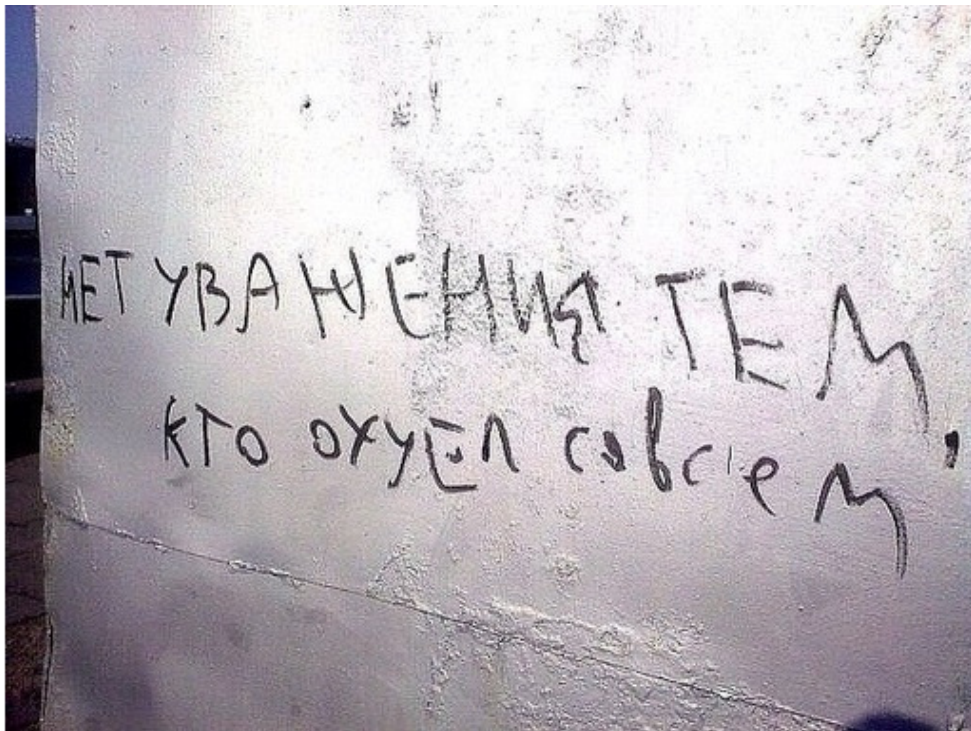 НЕТ УВАЖЕНИЯ ТЕМ,
КТО ОХУЕЛ совсем